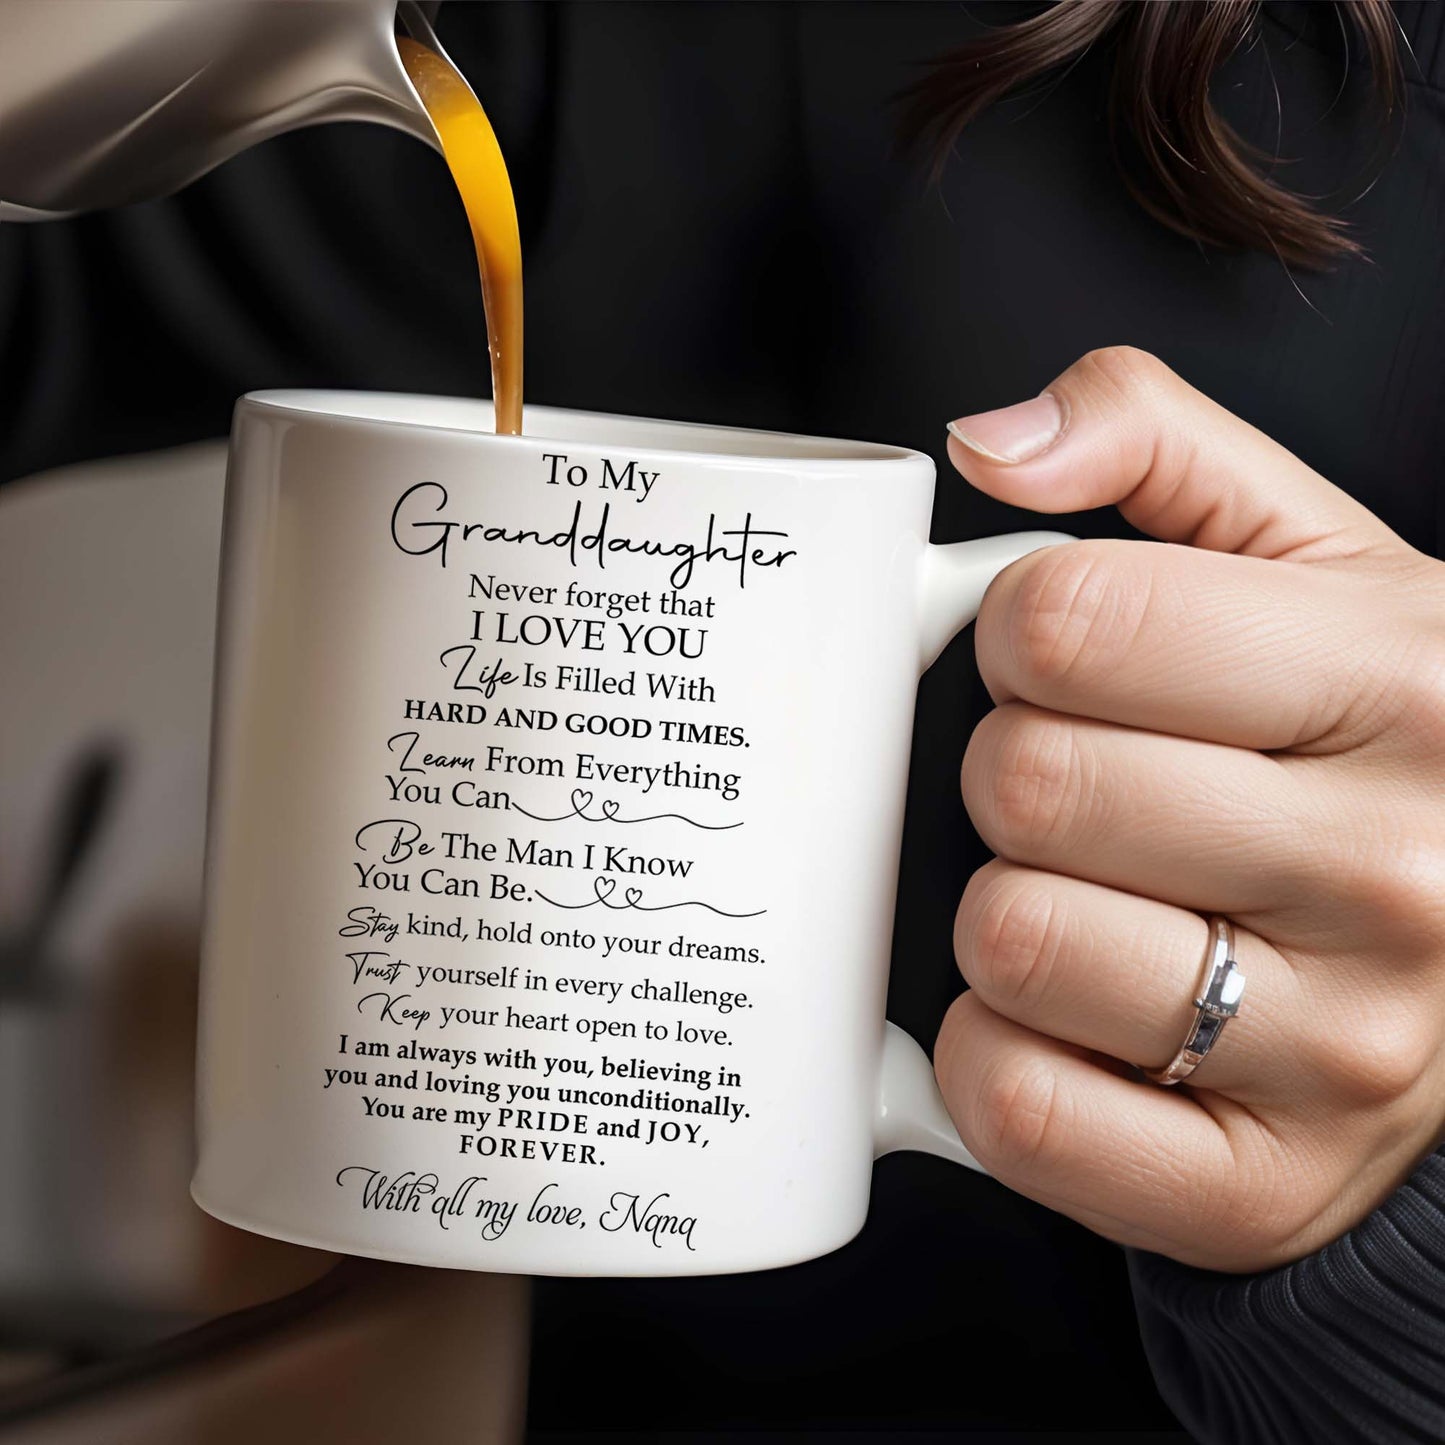 To My
Granddaughter
Never forget that
I LOVE YOU
Life Is Filled With
HARD AND GOOD TIMES.
Learn From Everything
You Can
Be The Man I Know
You Can Be.
Stay kind, hold onto your dreams.
Trust yourself in every challenge.
Keep your heart open to love.
I am always with you, believing in
you and loving you unconditionally.
You are my PRIDE and JOY,
FOREVER.
With all my love, Nana